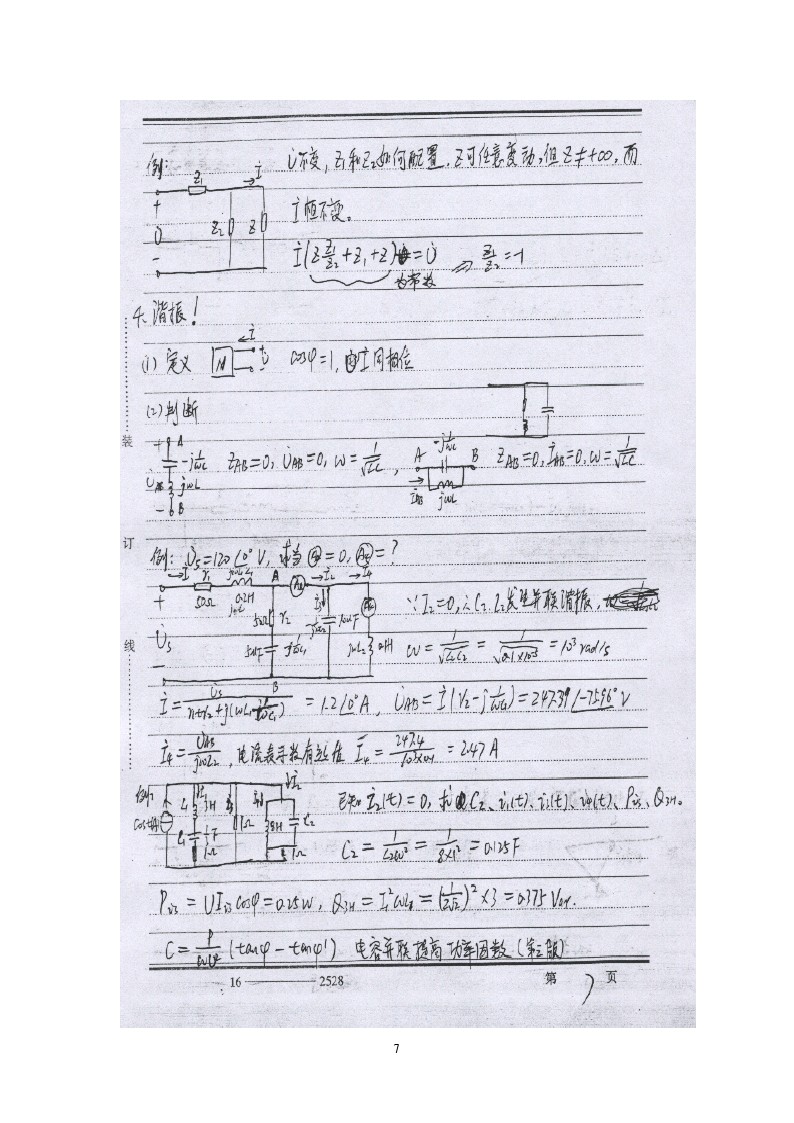 例: U̇不变, Z₁和Z₂如何配置, Z可任意变动, 但Z≠+∞, 而
İ恒不变。
Z₁ İ + U̇ - Z₂ Z
İ(Z Z₁/Z₂ + Z₁ + Z) = U̇ ⇒ Z₁/Z₂ = -1
为常数
4、谐振!
(1) 定义 N İ + U̇ - cosφ=1, U̇、İ同相位
(2) 判断
装
+ A -j1/ωC U̇AB jωL - B ZAB=0, U̇AB=0, ω=1/√LC, A -j1/ωC B İAB jωL ZAB=0, İAB=0, ω=1/√LC
订
例: U̇s=120∠0° V, 求当 A₂=0, A₄=?
İ r₁ jωL₁ A A₂ İ₂ İ₄
+ 50Ω 0.2H 50Ω r₂ İ₃ 10μF A₄
∵ İ₂=0, ∴ C₂、L₂发生并联谐振,
线
U̇s 5μF jωL₂ 0.1H
ω = 1/√L₂C₂ = 1/√0.1×10⁻⁵ = 10³ rad/s
- B
İ = U̇s/(r₁+r₂+j(ωL₁-1/ωC₁)) = 1.2∠0° A, U̇AB = İ(r₂-j1/ωC₁) = 247.39∠-75.96° V
İ₄ = U̇AB/jωL₂, 电流表寻数有效值 I₄ = 247.4/10³×0.1 = 2.47 A
例: L₁ 3H 1Ω 8H C₂ C₁ 1Ω 1Ω
已知 i₂(t)=0, 求 C₂、i₁(t)、i₃(t)、i₄(t)、Pis、Q3H。
C₂ = 1/L₂ω² = 1/8×1² = 0.125F
Pis = UIis cosφ = 0.25W, Q3H = I₁²ωL₁ = (1/2√2)²×3 = 0.375 Var.
C = P/ωU² (tanφ - tanφ') 电容并联提高功率因数 (第三版)
16 2528 第 7 页
7